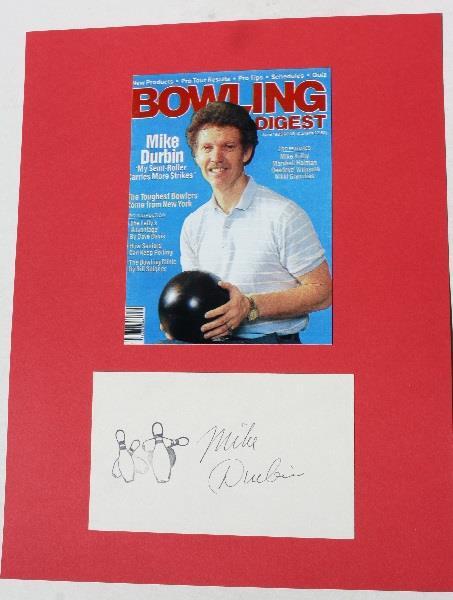 New Products • Pro Tour Results • Pro Tips • Schedules • Quiz
BOWLING
DIGEST
Mike
Durbin
'My Semi-Roller
Carries More Strikes'
The Toughest Bowlers
Come from New York
The Lefty's
Advantage
By Dave Davis
How Seniors
Can Keep Rolling
The Bowling Clinic
By Bill Spigner
Mike Aulby
Marshall Holman
Mike
Durbin